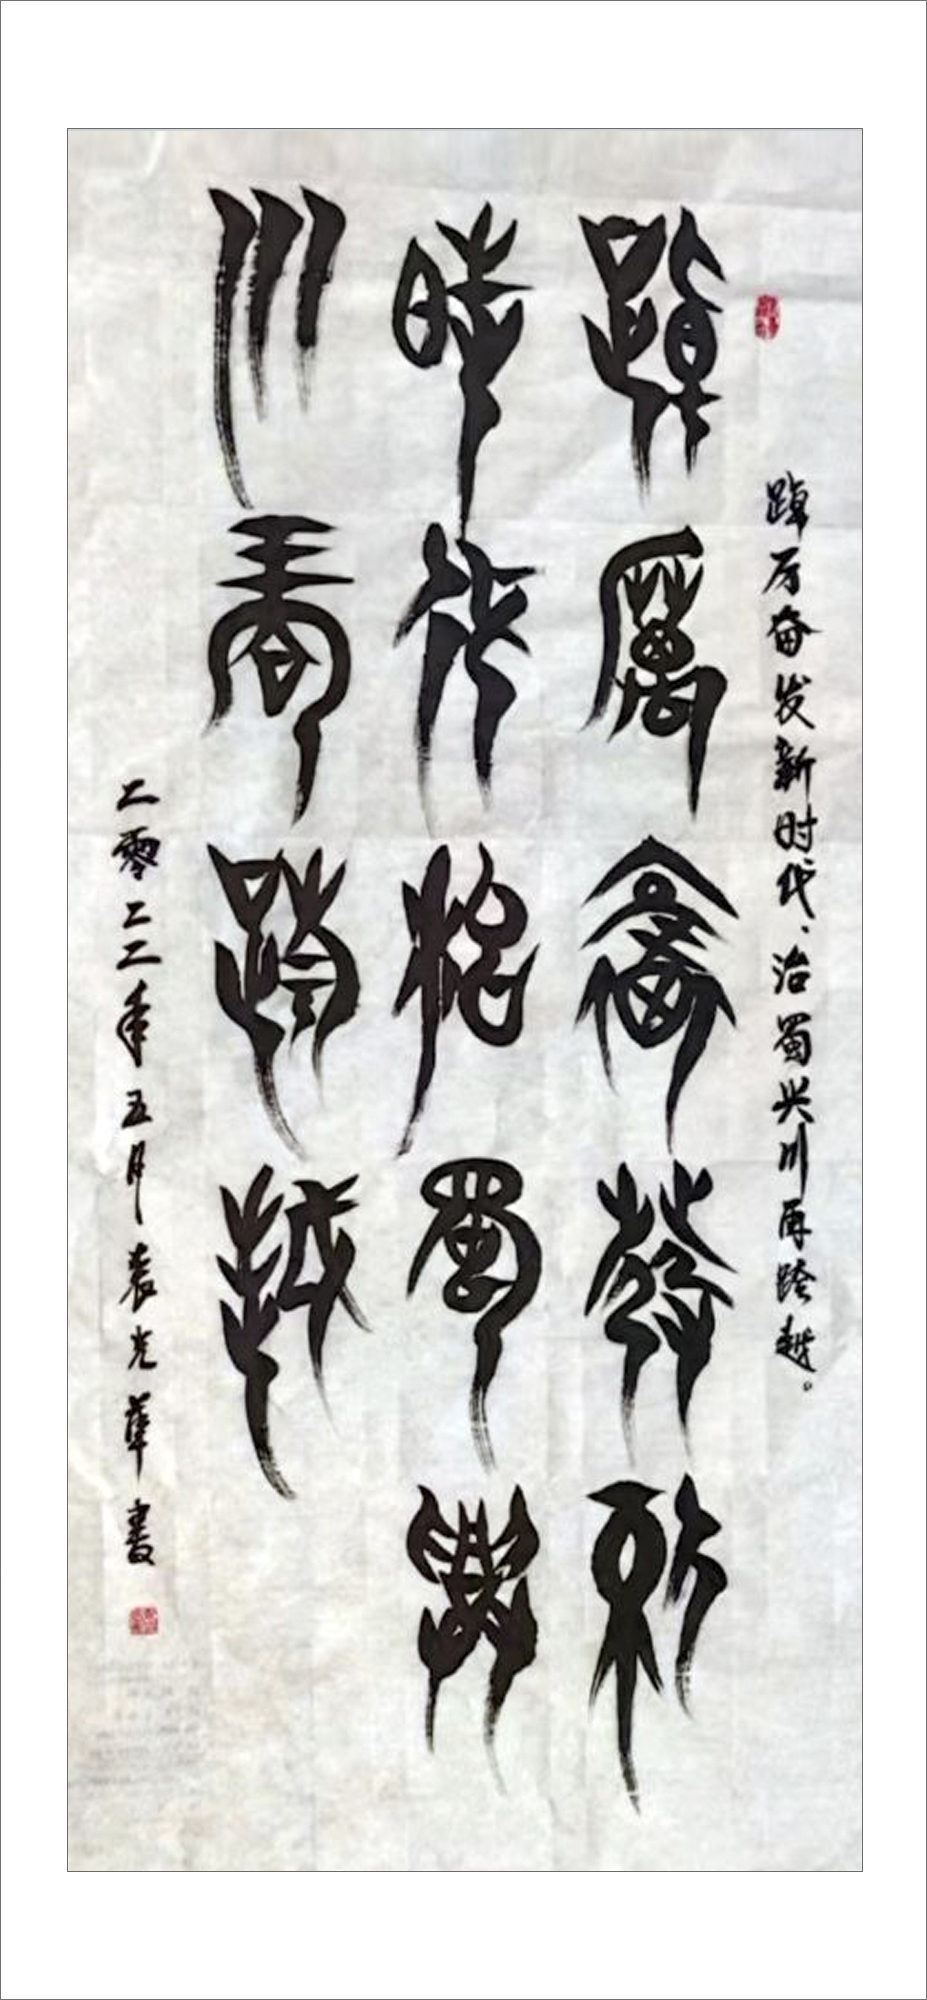 踔厉奋发新时代、治蜀兴川再跨越。
踔厲奮發新
時代治蜀興
川再跨越
二零二二年五月袁光華書